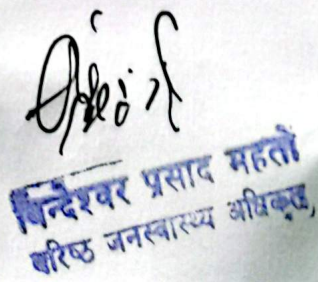 बिन्देश्वर प्रसाद महतो
बरिष्ठ जनस्वास्थ्य अधिकृत,